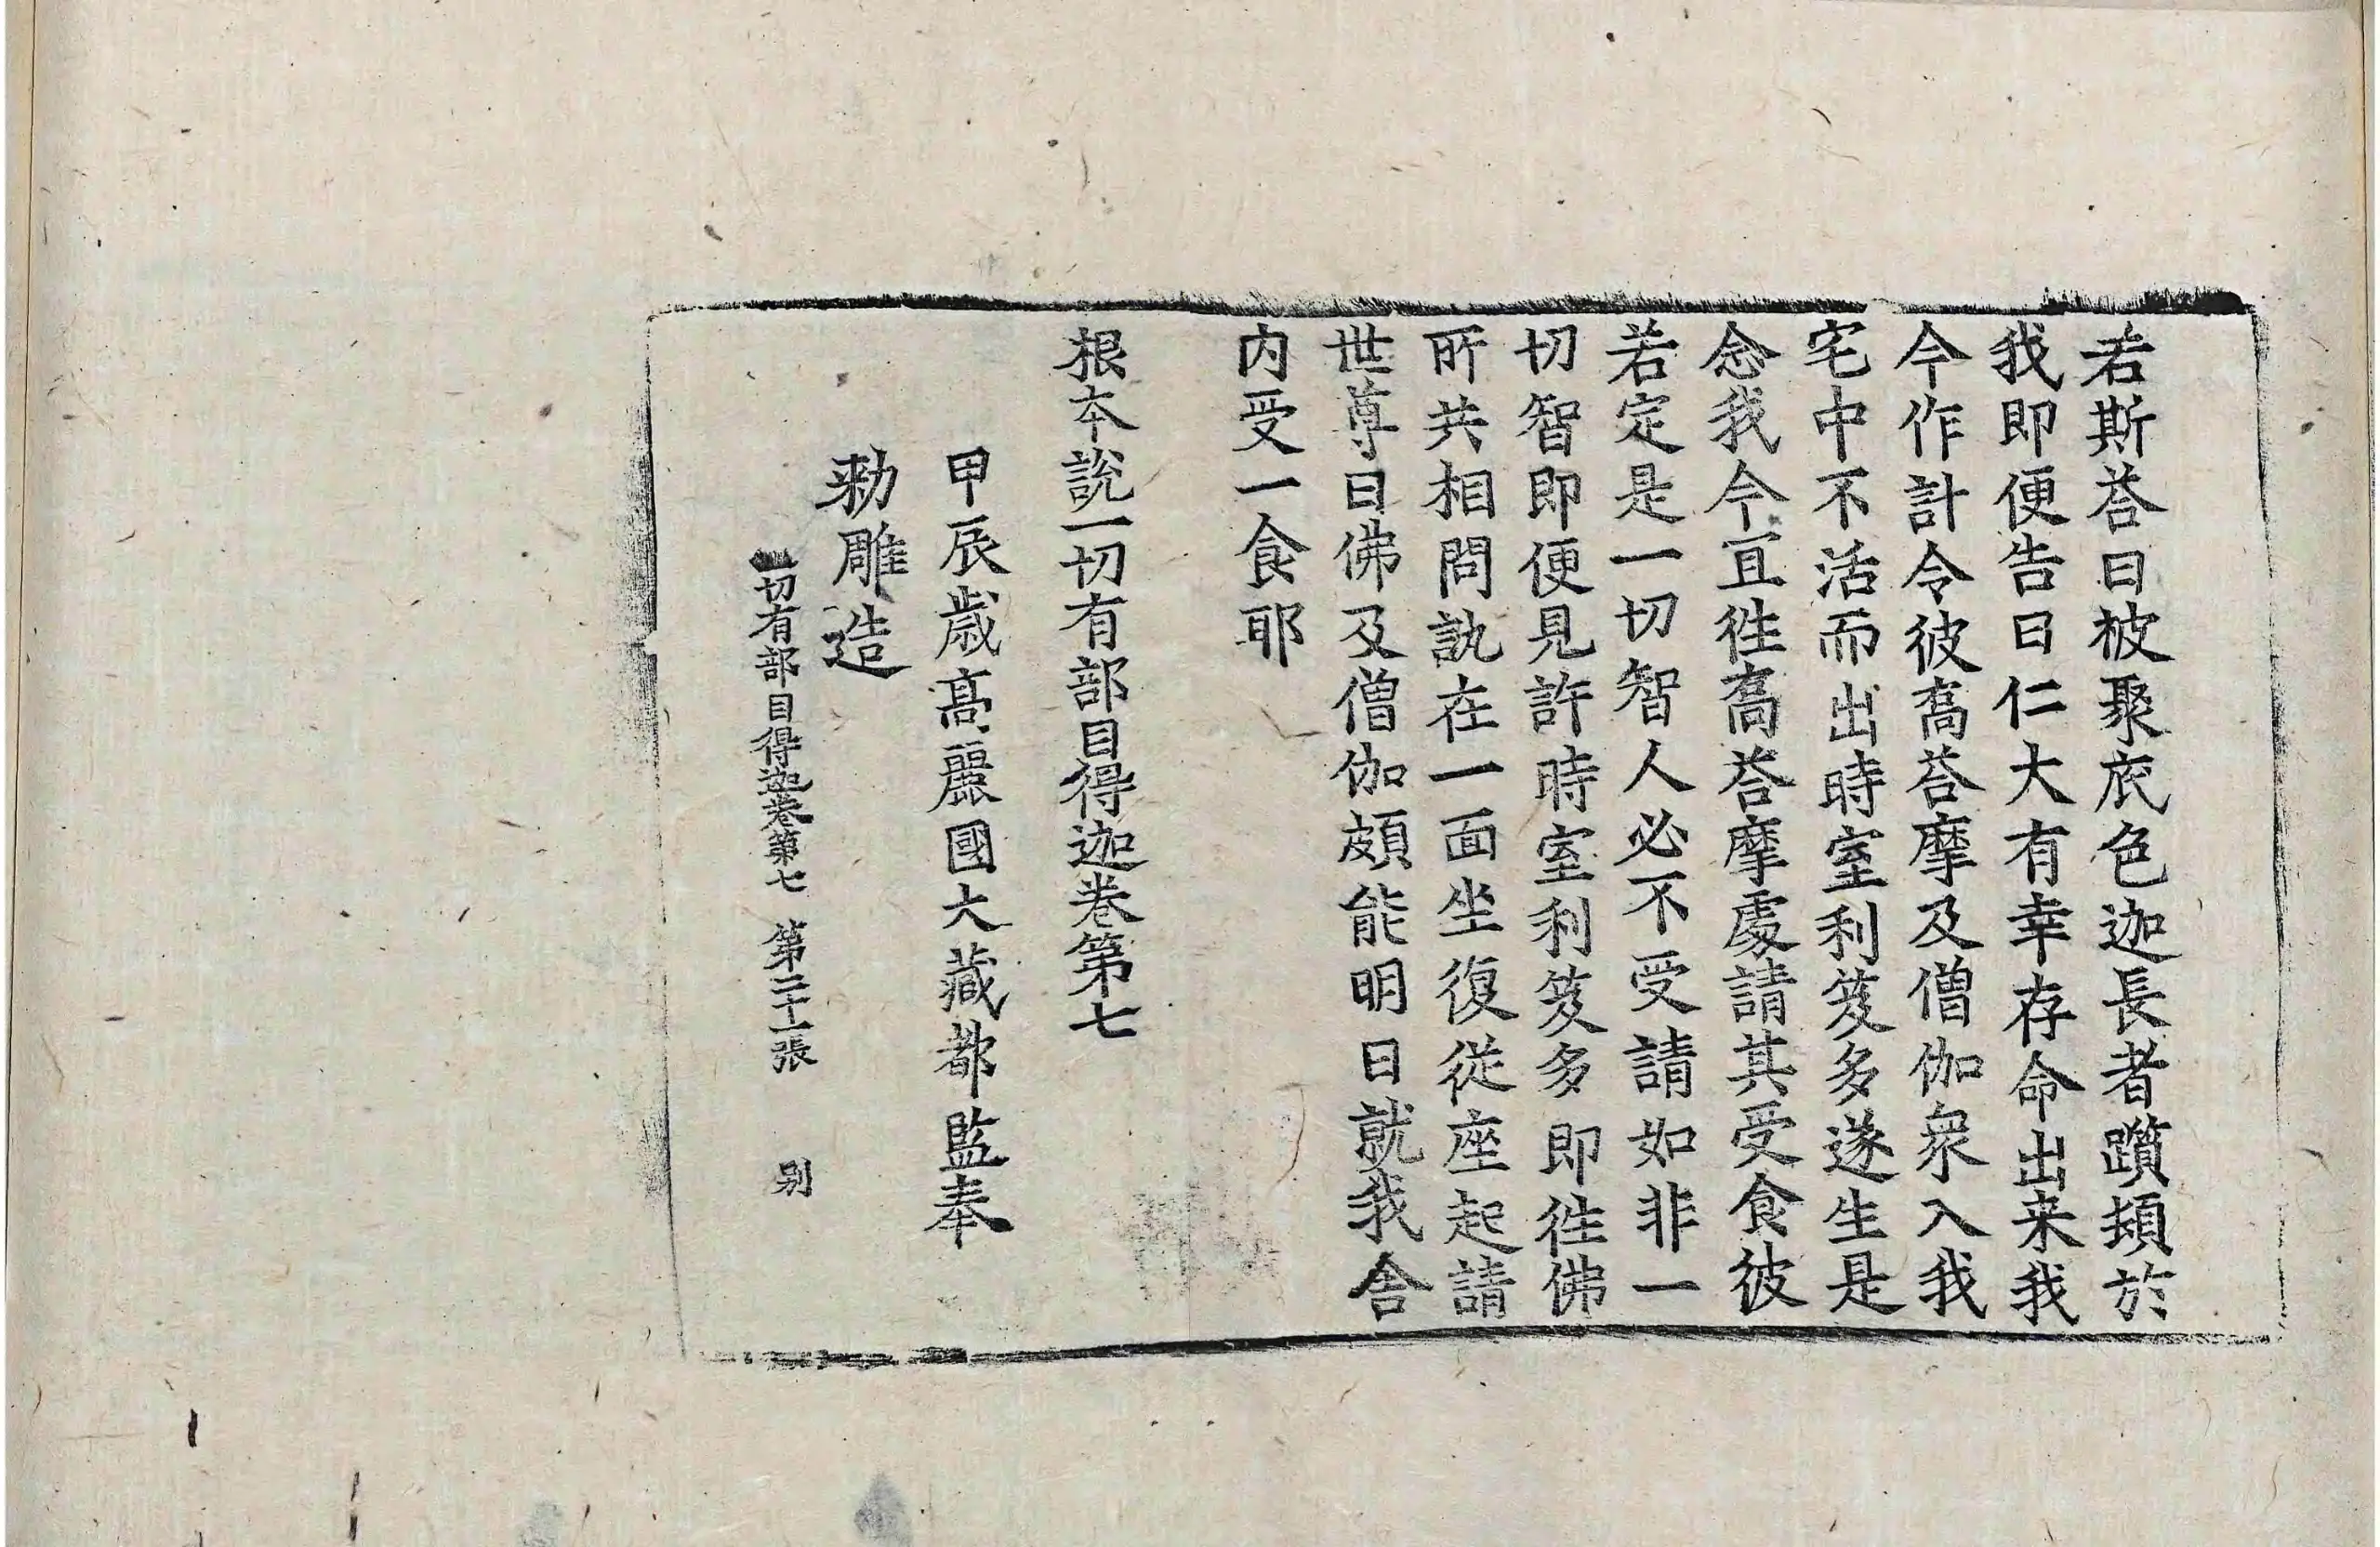 若斯荅曰被聚底色迦長者躓頞於
我即便告曰仁大有幸存命出来我
今作計令彼喬荅摩及僧伽衆入我
宅中不活而出時室利笈多遂生是
念我今宜徃喬荅摩處請其受食彼
若定是一切智人必不受請如非一
切智即便見許時室利笈多即徃佛
所共相問訊在一面坐復從座起請
世尊曰佛及僧伽頗能明日就我舍
内受一食耶
根本說一切有部目得迦卷第七
甲辰歲高麗國大藏都監奉
勑雕造
一切有部目得迦卷第七 第二十一張 别